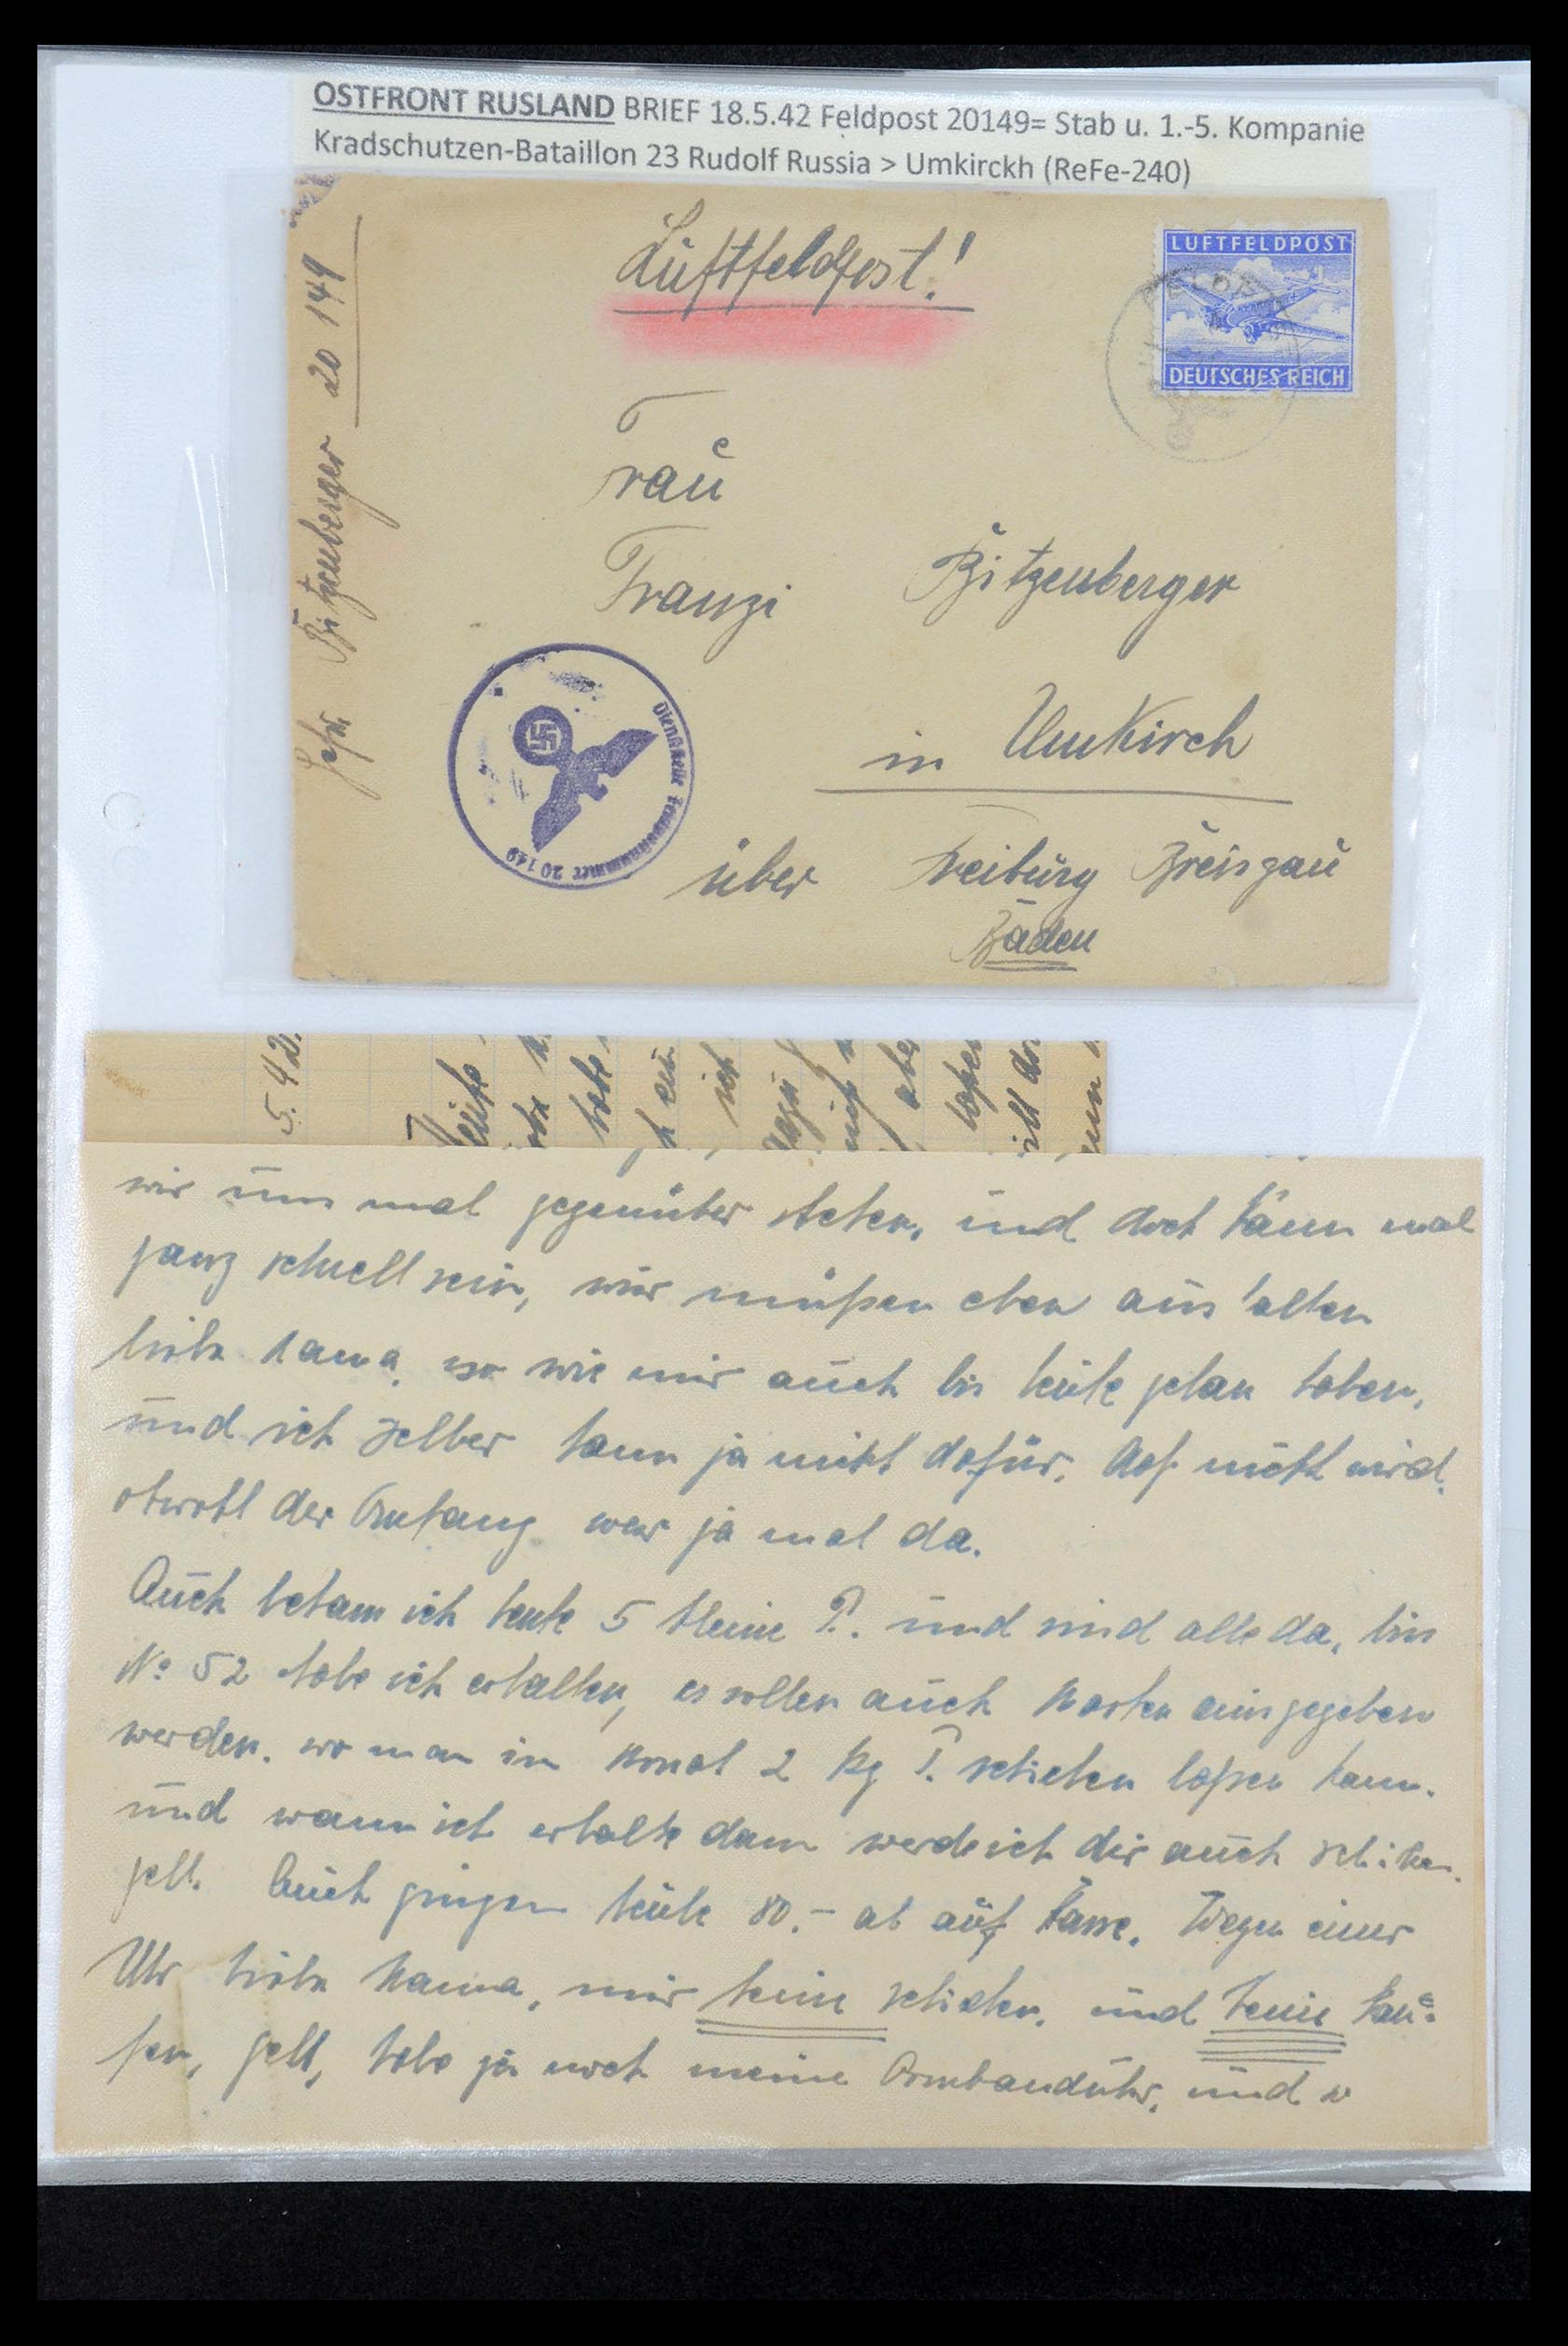 OSTFRONT RUSLAND BRIEF 18.5.42 Feldpost 20149= Stab u. 1.-5. Kompanie
Kradschutzen-Bataillon 23 Rudolf Russia > Umkirckh (ReFe-240)
Luftfeldpost!
LUFTFELDPOST
DEUTSCHES REICH
Gefr. Bitzenberger 20 149
Frau
Franzi Bitzenberger
in Umkirch
über Freiburg Breisgau
Baden
Dienststelle Feldpostnummer 20149
5. 42.
Heute
habe
ich
wir uns mal gegenüber stehen, und doch kann mal
ganz schnell sein, wir müßen eben aushalten
liebe Mama, so wie mir auch bis heute getan haben,
und ich selber kann ja nicht dafür, das nicht wird.
obwohl der Anfang war ja mal da.
Auch bekam ich heute 5 kleine P. und sind alle da, bis
No 52 habe ich erhalten, es sollen auch Marken ausgegeben
werden. wo man im Monat 2 kg P. schicken laßen kann.
und wann ich erhalte dann werde ich dir auch schiken.
gell. Auch gingen heute 80.- ab auf Kasse. Wegen einer
Uhr liebe Mama, mir keine schicken. und keine kau-
fen, gell, habe ja noch meine Armbanduhr, und